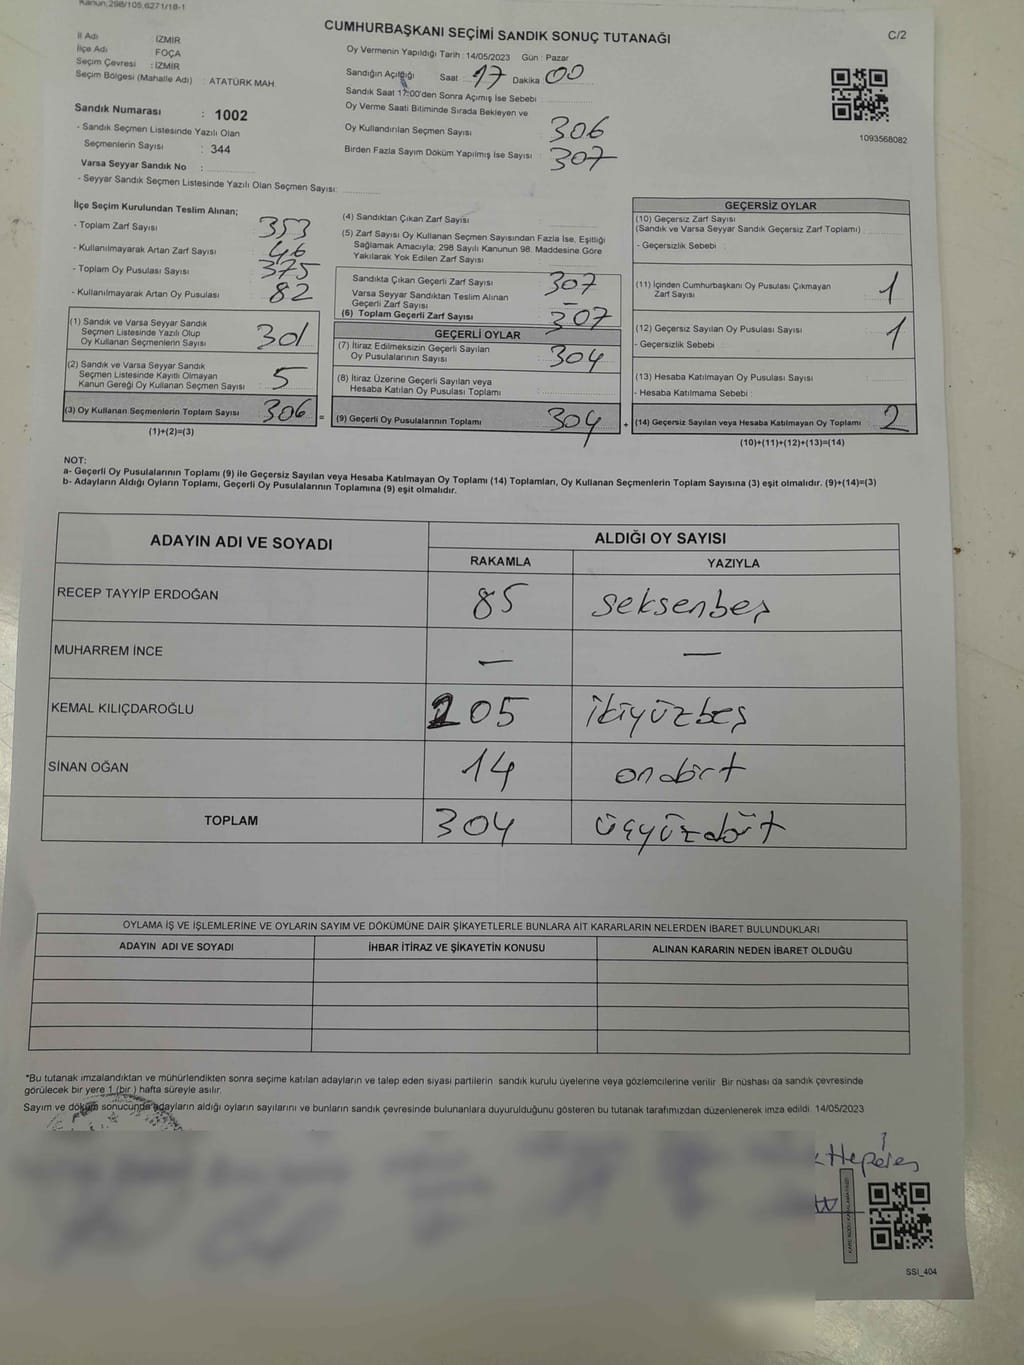 Kanun,298/105,6271/18-1
CUMHURBAŞKANI SEÇİMİ SANDIK SONUÇ TUTANAĞI
C/2
İl Adı : İZMİR
İlçe Adı : FOÇA
Seçim Çevresi : İZMİR
Seçim Bölgesi (Mahalle Adı) : ATATÜRK MAH.
Oy Vermenin Yapıldığı Tarih : 14/05/2023 Gün : Pazar
Sandığın Açıldığı Saat : 17 Dakika : 00
Sandık Saat 17:00'den Sonra Açımış İse Sebebi :
Oy Verme Saati Bitiminde Sırada Bekleyen ve
Oy Kullandırılan Seçmen Sayısı : 306
Birden Fazla Sayım Döküm Yapılmış İse Sayısı : 307
1093568082
Sandık Numarası : 1002
- Sandık Seçmen Listesinde Yazılı Olan
Seçmenlerin Sayısı : 344
Varsa Seyyar Sandık No :
- Seyyar Sandık Seçmen Listesinde Yazılı Olan Seçmen Sayısı:
İlçe Seçim Kurulundan Teslim Alınan;
- Toplam Zarf Sayısı : 353
- Kullanılmayarak Artan Zarf Sayısı : 46
- Toplam Oy Pusulası Sayısı : 375
- Kullanılmayarak Artan Oy Pusulası : 82
(1) Sandık ve Varsa Seyyar Sandık
Seçmen Listesinde Yazılı Olup
Oy Kullanan Seçmenlerin Sayısı : 301
(2) Sandık ve Varsa Seyyar Sandık
Seçmen Listesinde Kayıtlı Olmayan
Kanun Gereği Oy Kullanan Seçmen Sayısı : 5
(3) Oy Kullanan Seçmenlerin Toplam Sayısı : 306 =
(1)+(2)=(3)
(4) Sandıktan Çıkan Zarf Sayısı :
(5) Zarf Sayısı Oy Kullanan Seçmen Sayısından Fazla İse, Eşitliği
Sağlamak Amacıyla; 298 Sayılı Kanunun 98. Maddesine Göre
Yakılarak Yok Edilen Zarf Sayısı :
Sandıkta Çıkan Geçerli Zarf Sayısı : 307
Varsa Seyyar Sandıktan Teslim Alınan
Geçerli Zarf Sayısı : –
(6) Toplam Geçerli Zarf Sayısı : 307
GEÇERLİ OYLAR
(7) İtiraz Edilmeksizin Geçerli Sayılan
Oy Pusulalarının Sayısı : 304
(8) İtiraz Üzerine Geçerli Sayılan veya
Hesaba Katılan Oy Pusulası Toplamı :
(9) Geçerli Oy Pusulalarının Toplamı : 304 +
GEÇERSİZ OYLAR
(10) Geçersiz Zarf Sayısı
(Sandık ve Varsa Seyyar Sandık Geçersiz Zarf Toplamı) :
- Geçersizlik Sebebi :
(11) İçinden Cumhurbaşkanı Oy Pusulası Çıkmayan
Zarf Sayısı : 1
(12) Geçersiz Sayılan Oy Pusulası Sayısı : 1
- Geçersizlik Sebebi :
(13) Hesaba Katılmayan Oy Pusulası Sayısı :
- Hesaba Katılmama Sebebi :
(14) Geçersiz Sayılan veya Hesaba Katılmayan Oy Toplamı : 2
(10)+(11)+(12)+(13)=(14)
NOT:
a- Geçerli Oy Pusulalarının Toplamı (9) ile Geçersiz Sayılan veya Hesaba Katılmayan Oy Toplamı (14) Toplamları, Oy Kullanan Seçmenlerin Toplam Sayısına (3) eşit olmalıdır. (9)+(14)=(3)
b- Adayların Aldığı Oyların Toplamı, Geçerli Oy Pusulalarının Toplamına (9) eşit olmalıdır.
ADAYIN ADI VE SOYADI ALDIĞI OY SAYISI
RAKAMLA YAZIYLA
RECEP TAYYİP ERDOĞAN 85 seksenbeş
MUHARREM İNCE – –
KEMAL KILIÇDAROĞLU 205 ikiyüzbeş
SİNAN OĞAN 14 ondört
TOPLAM 304 üçyüzdört
OYLAMA İŞ VE İŞLEMLERİNE VE OYLARIN SAYIM VE DÖKÜMÜNE DAİR ŞİKAYETLERLE BUNLARA AİT KARARLARIN NELERDEN İBARET BULUNDUKLARI
ADAYIN ADI VE SOYADI İHBAR İTİRAZ VE ŞİKAYETİN KONUSU ALINAN KARARIN NEDEN İBARET OLDUĞU
*Bu tutanak imzalandıktan ve mühürlendikten sonra seçime katılan adayların ve talep eden siyasi partilerin sandık kurulu üyelerine veya gözlemcilerine verilir. Bir nüshası da sandık çevresinde
görülecek bir yere 1 (bir ) hafta süreyle asılır.
Sayım ve döküm sonucunda adayların aldığı oyların sayılarını ve bunların sandık çevresinde bulunanlara duyurulduğunu gösteren bu tutanak tarafımızdan düzenlenerek imza edildi. 14/05/2023
SSI_404